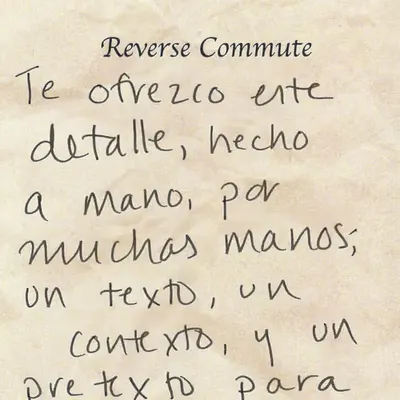 Reverse Commute
Te ofrezco este
detalle, hecho
a mano, por
muchas manos;
un texto, un
contexto, y un
pretexto para